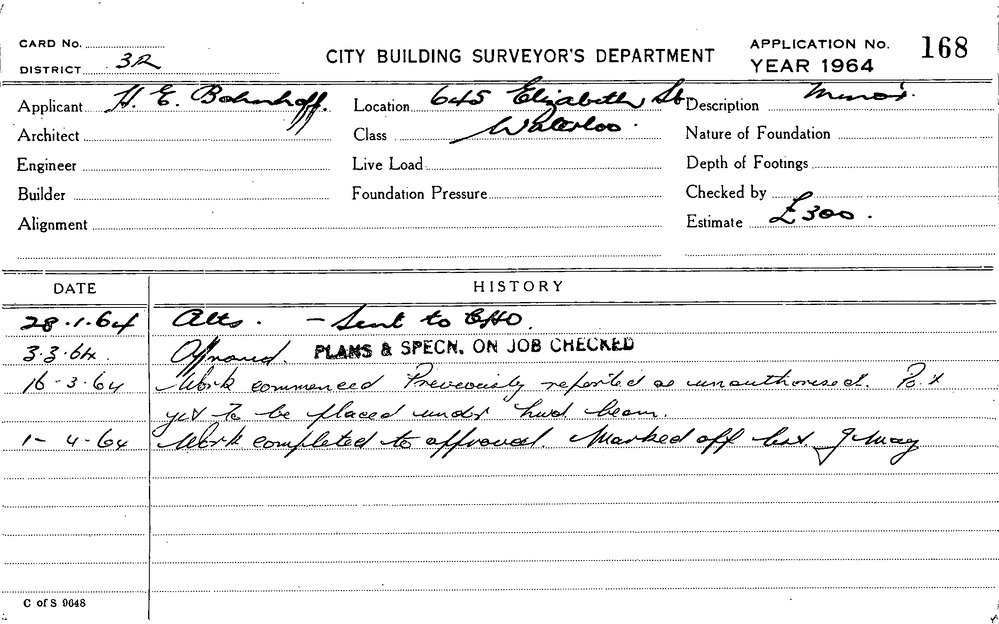 CARD No.
DISTRICT 3R
CITY BUILDING SURVEYOR'S DEPARTMENT
APPLICATION No. 168
YEAR 1964
Applicant H. E. Bohnhoff. Location 645 Elizabeth St Description Minor.
Architect Class Waterloo. Nature of Foundation
Engineer Live Load Depth of Footings
Builder Foundation Pressure Checked by
Alignment Estimate £300.
DATE HISTORY
28.1.64 Alts. - Sent to CHO.
3.3.64. Approved. PLANS & SPECN. ON JOB CHECKED
16-3-64 Work commenced Previously reported as unauthorised.
yet to be placed under hwd beam.
1-4-64 Work completed to approval. Marked off list.
C of S 9648